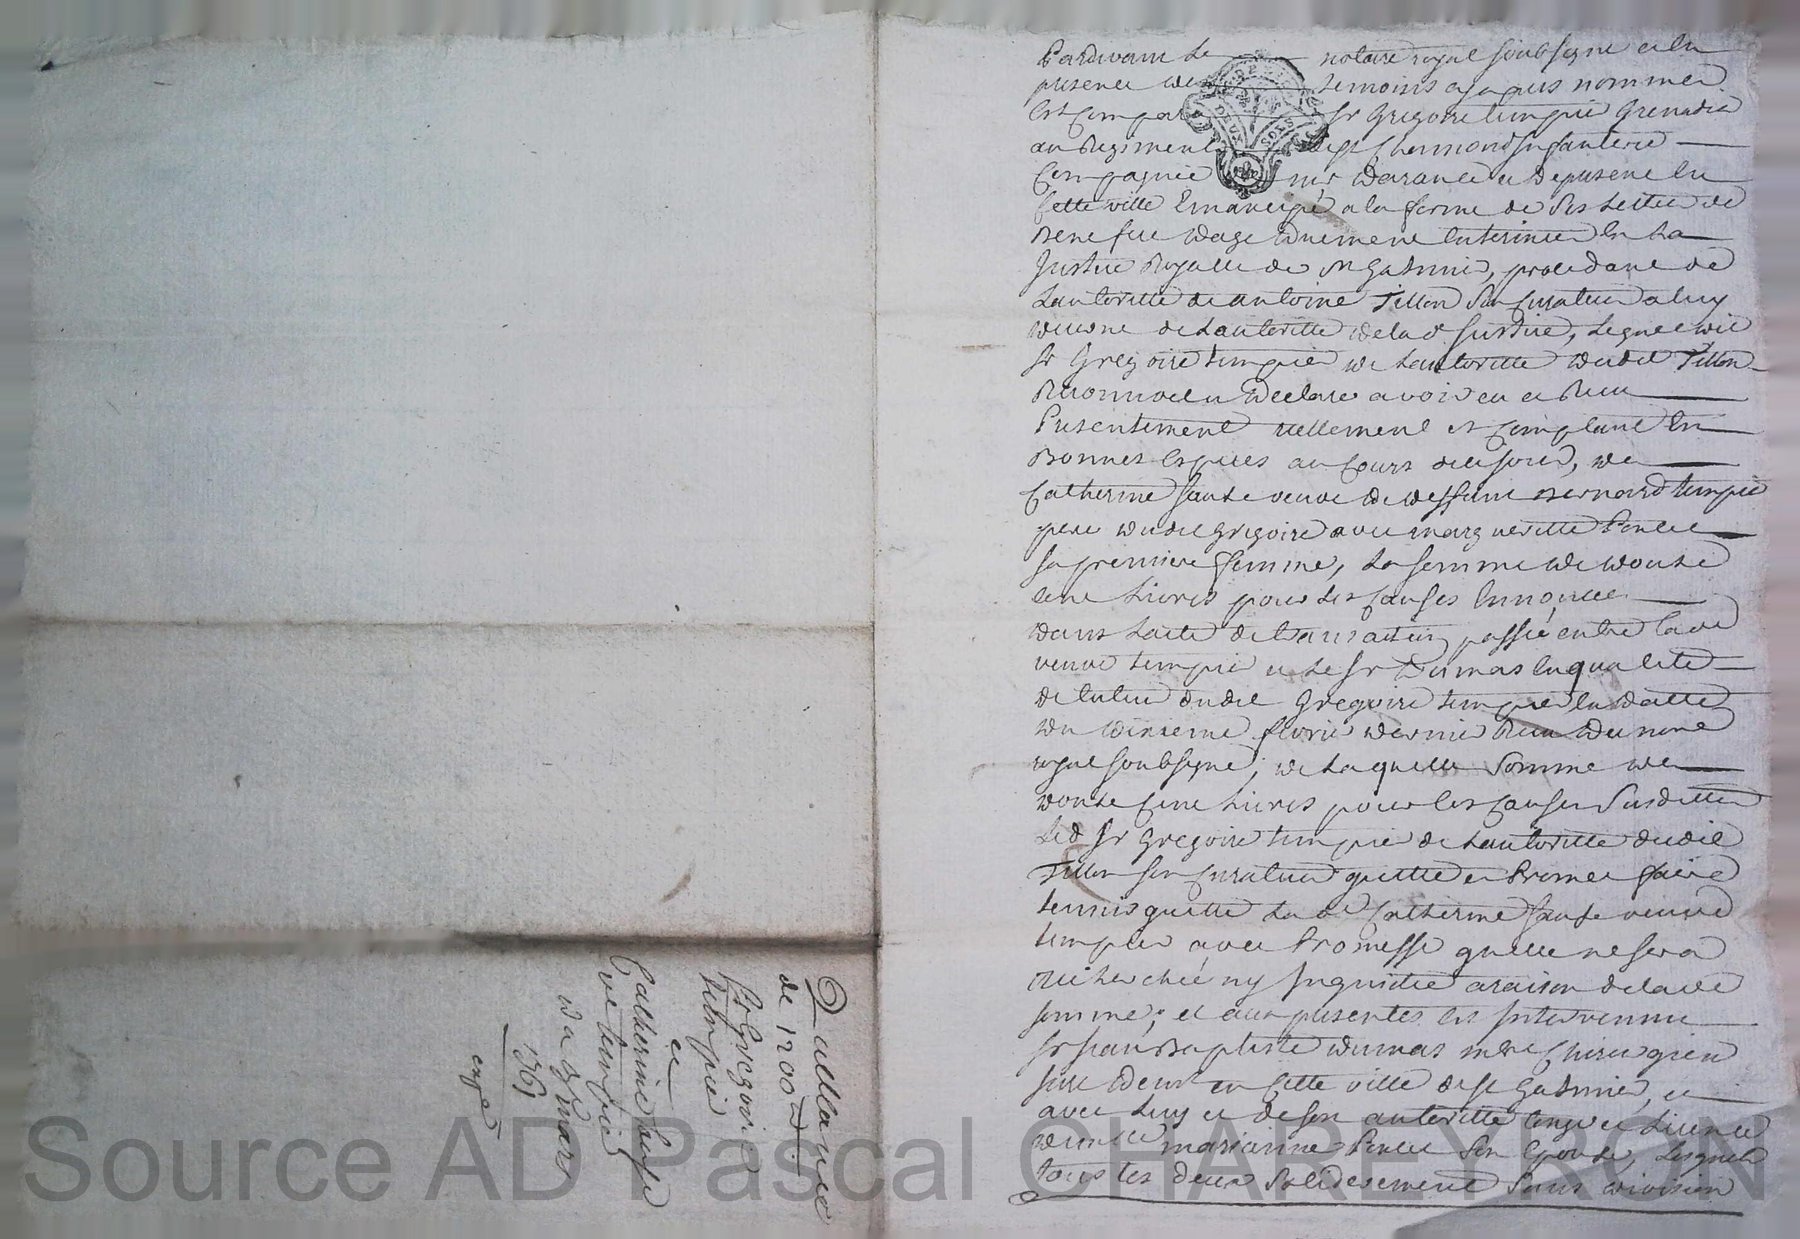 Pardevant le notaire royal soubsigne et en
presence des temoins cy apres nommes
Est Comparu Sr Gregoire tempier Grenadier
au Regiment de St Chamond Infanterie
Compagnie de Mr Darance de present en
Cette ville Emancipé a la forme de ses Lettres de
Benefice dage duement Enterinée En la
Justice Royalle de St Galmier, procedant de
Lautoritté de antoine Tillon son Curateur a luy
decerné de Lautoritté de lad. Justice, Lequel dit
Sr Gregoire tempier de Lautoritté dudit Tillon
Reconnoit et Declare avoir eu et Receu
Presentement reellement et Comptant En
Bonnes Espèces au Cours de ce jour, de
Catherine veuve de deffunt Bernard tempier
pere dudit Gregoire avec margueritte
sa premiere femme, La somme de douze
cent Livres pour les Causes Enoncées
dans Lacte de transaction passé entre lad.
veuve tempier et le Sr Dumas En qualité
de tuteur dudit Gregoire tempier en datte
du dixieme fevrier dernier Receu du notre
royal soubsigné; de Laquelle Somme de
douze Cent Livres pour les Causes Susdittes
Led. Sr Gregoire tempier de Lautoritté dudit
Tillon son Curateur quitte et Promet faire
tenir quitte La de. Catherine veuve
tempier avec Promesse quelle ne sera
Recherchée ny Inquietée a raison de lade.
somme; et aux presentes est Intervenu
Sr Jean Baptiste Dumas Mtre Chirurgien
juré Demt en Cette ville de St Galmier, et
avec Luy et de son autoritté Congé et Licence
delle marianne son Epouse, Lesquels
tous les deux Solidairement Sans division
Quittance
de 1200 #
Sr Gregoire
tempier
a
Catherine
ve tempier
du mars
1761
expé
Source AD Pascal CHAREYRON